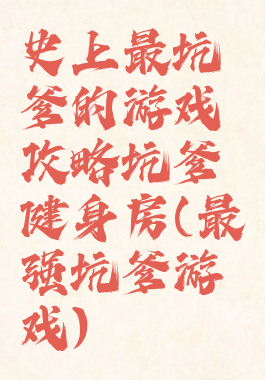 史上最坑
爹的游戏
攻略坑爹
健身房(最
强坑爹游
戏)